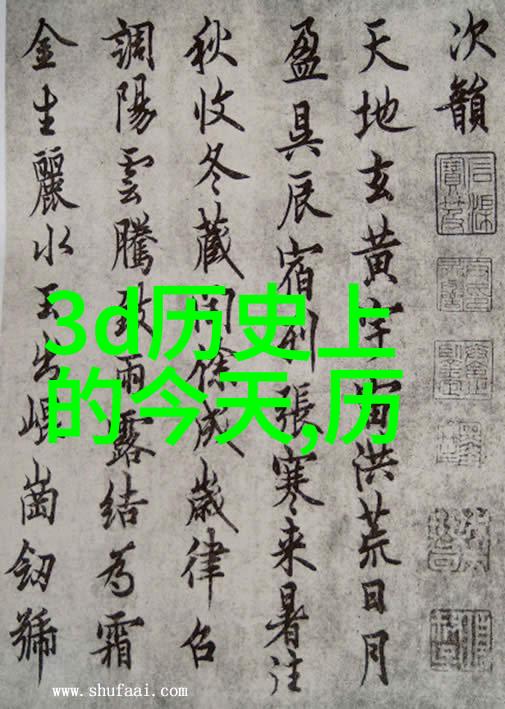 次韻
天地玄黃宇宙洪荒日月
盈昃辰宿列張寒来暑往
秋收冬藏閏餘成歲律召
調陽雲騰致雨露結為霜
金生麗水玉出崐崗劒號
3d历史上
的今天,历
www.shufaai.com